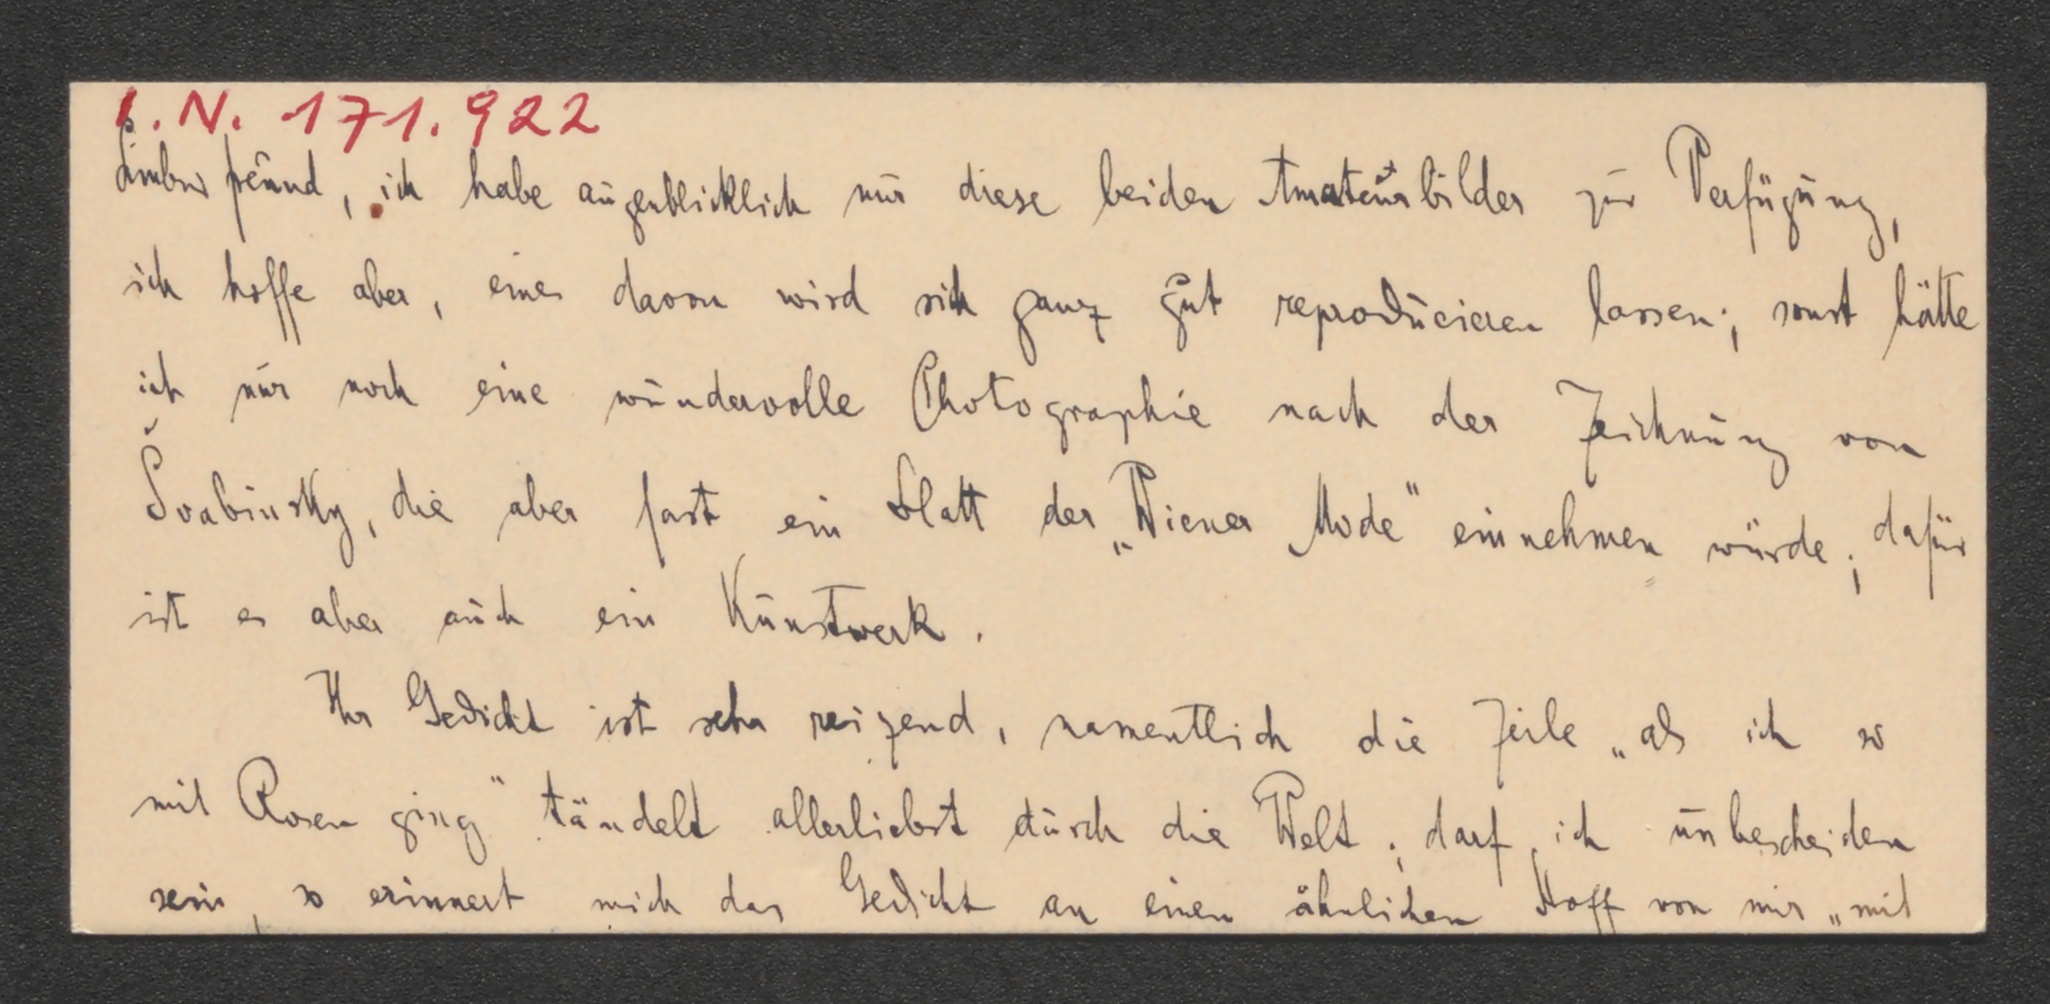 I.N. 171.922
Lieber Freund, ich habe augenblicklich nur diese beiden Amateurbilder zur Verfügung,
ich hoffe aber, eines davon wird sich ganz gut reproducieren lassen; sonst hätte
ich nur noch eine wundervolle Photographie nach der Zeichnung von
Švabinsky, die aber fast ein Blatt der „Wiener Mode" einnehmen würde; dafür
ist es aber auch ein Kunstwerk.
Ihr Gedicht ist sehr reizend, namentlich die Zeile „als ich so
mit Rosen ging" tändelt allerliebst durch die Welt; darf ich unbescheiden
sein, so erinnert mich das Gedicht an einen ähnlichen Stoff von mir „mit